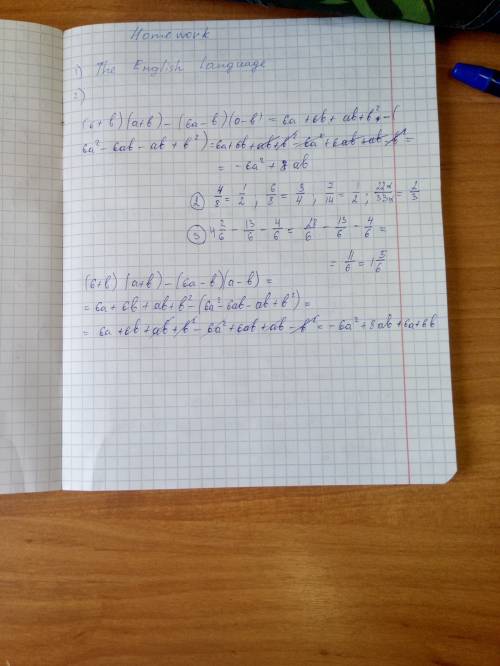 Homework
1) The English language
2)
(6+b)(a+b)-(6a-b)(a-b) = 6a+6b+ab+b²-(
6a²-6ab-ab+b²)=6a+6b+ab+b²-6a²+6ab+ab-b²=
= -6a²+8ab
② 4/8 = 1/2 ; 6/8 = 3/4 ; 7/14 = 1/2 ; 22x/33x = 2/3
③ 4 2/6 - 13/6 - 4/6 = 28/6 - 13/6 - 4/6 =
= 11/6 = 1 5/6
(6+b)(a+b)-(6a-b)(a-b) =
= 6a+6b+ab+b²-(6a²-6ab-ab+b²)=
= 6a+6b+ab+b²-6a²+6ab+ab-b²=-6a²+8ab+6a+6b